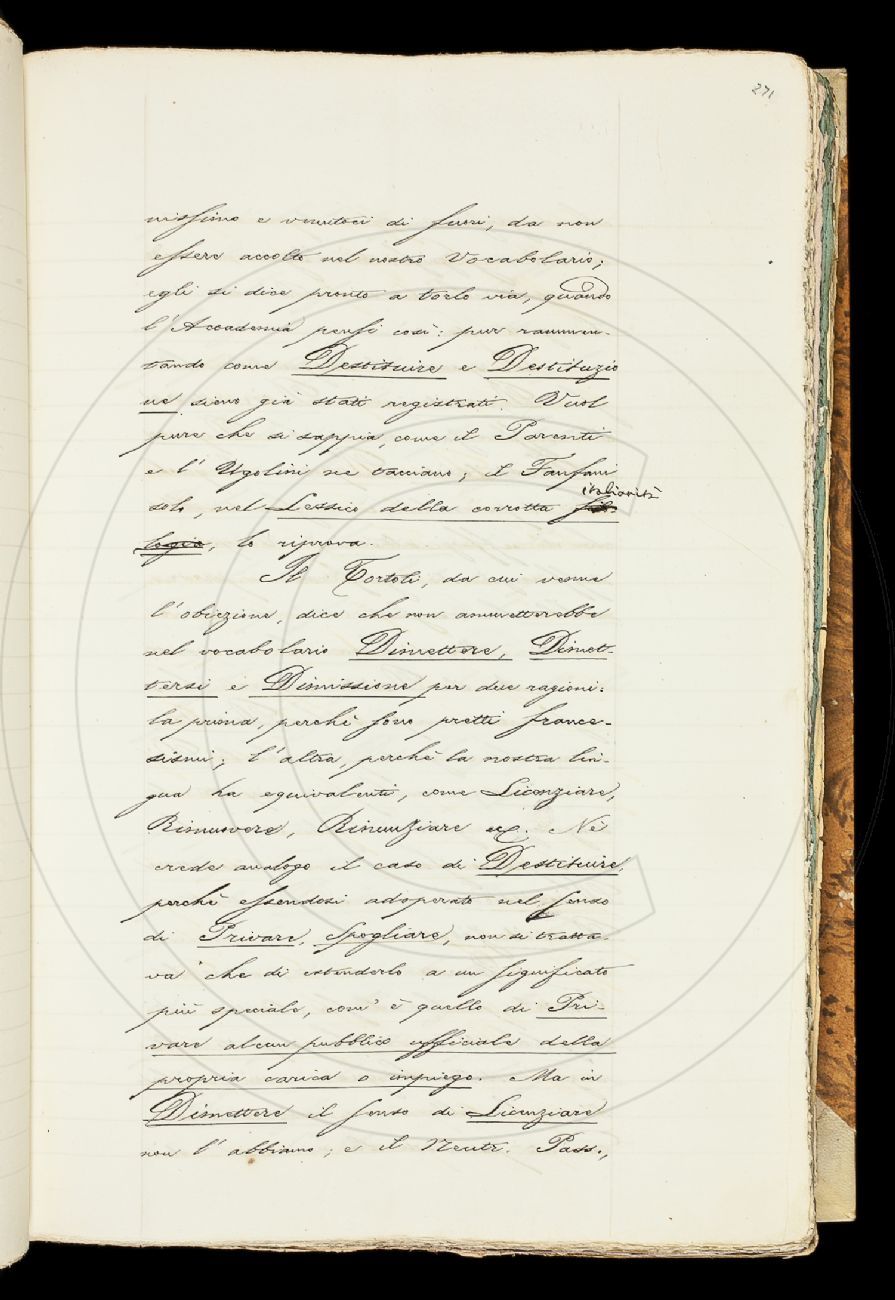 271
nissimo e venutoci di fuori, da non
essere accolto nel nostro Vocabolario;
egli si dice pronto a torlo via, quando
l'Accademia pensi così: pur rammen-
tando come Destituire e Destituzio
ne sieno già stati registrati. Vuol
pure che si sappia, come il Parenti
e l'Ugolini ne tacciano; il Fanfani
solo, nel Lessico della corrotta italianità
filo-
logia, lo riprova.
Il Tortoli, da cui venne
l'obiezione, dice che non ammetterebbe
nel vocabolario Dimettere, Dimet-
tersi e Dimissione per due ragioni:
la prima, perchè sono pretti france-
sismi; l'altra, perchè la nostra lin-
gua ha equivalenti, come Licenziare,
Rimuovere, Rinunziare ec. Nè
crede analogo il caso di Destituire,
perchè essendosi adoperato nel senso
di Privare, Spogliare, non si tratta-
va che di estenderlo a un significato
più speciale, com'è quello di Pri-
vare alcun pubblico ufficiale della
propria carica o impiego. Ma in
Dimettere il senso di Licenziare
non l'abbiamo; e il Neutr. Pass.,